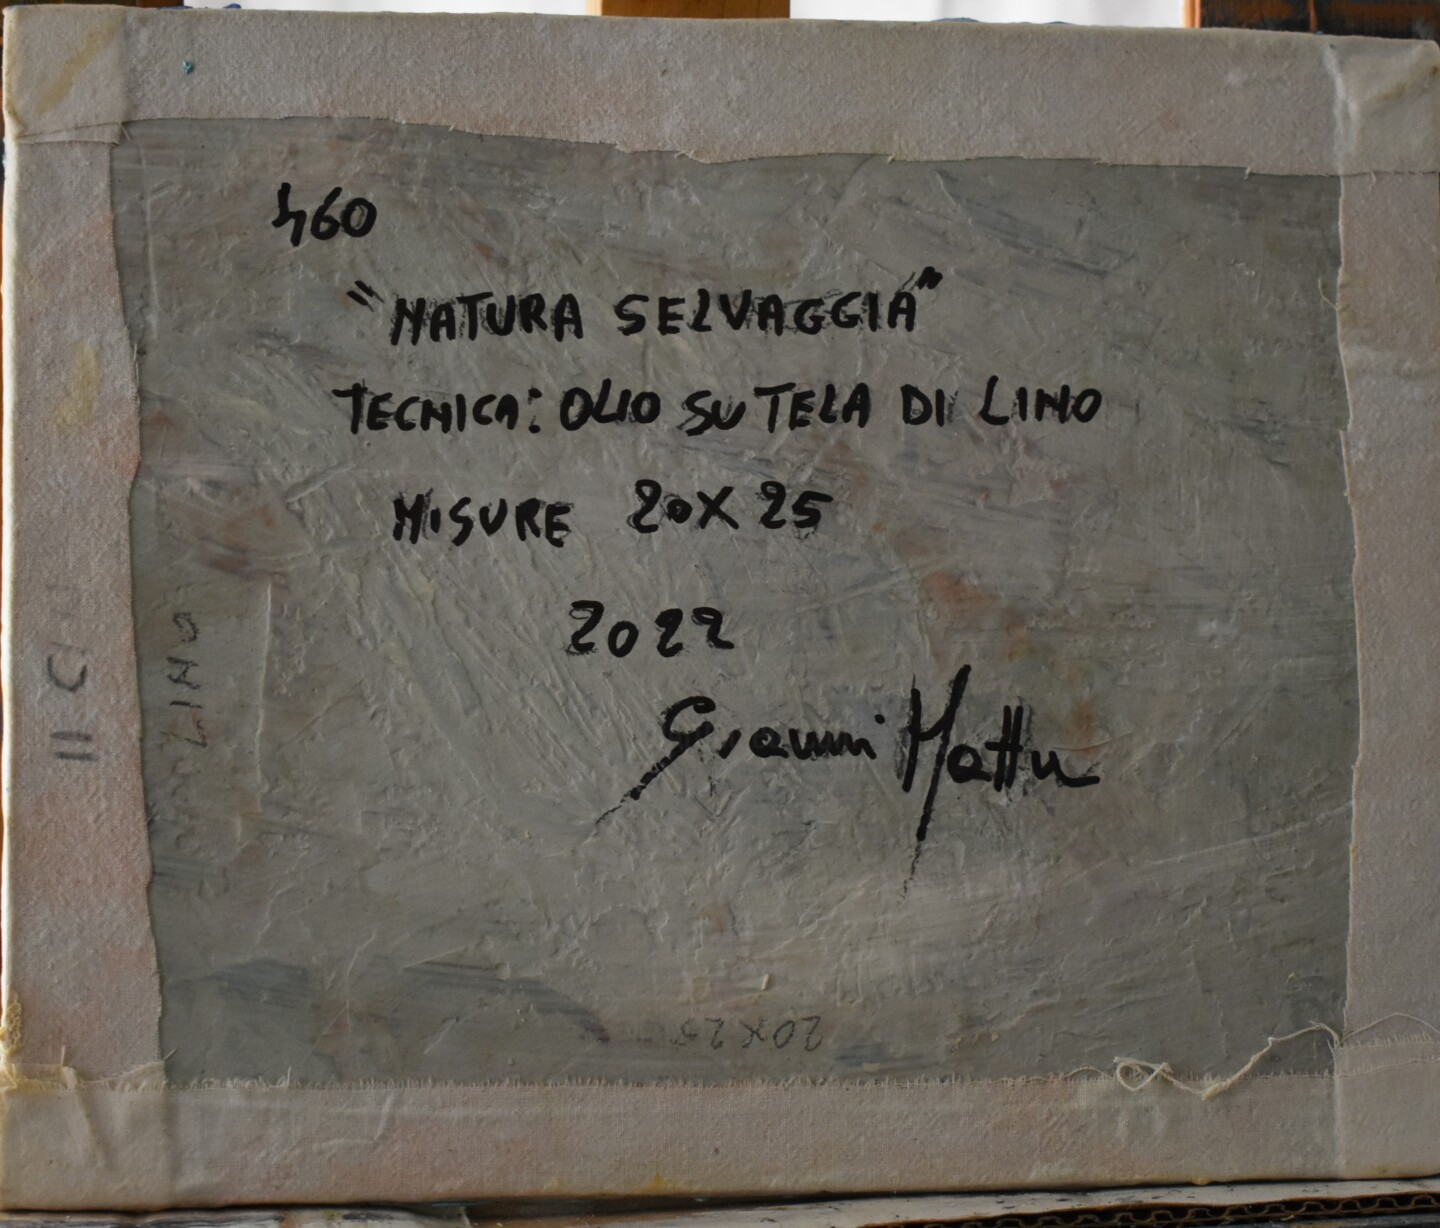 460
"NATURA SELVAGGIA"
TECNICA: OLIO SU TELA DI LINO
MISURE 20X25
2022
Gianni Mattu
LINO
20X25